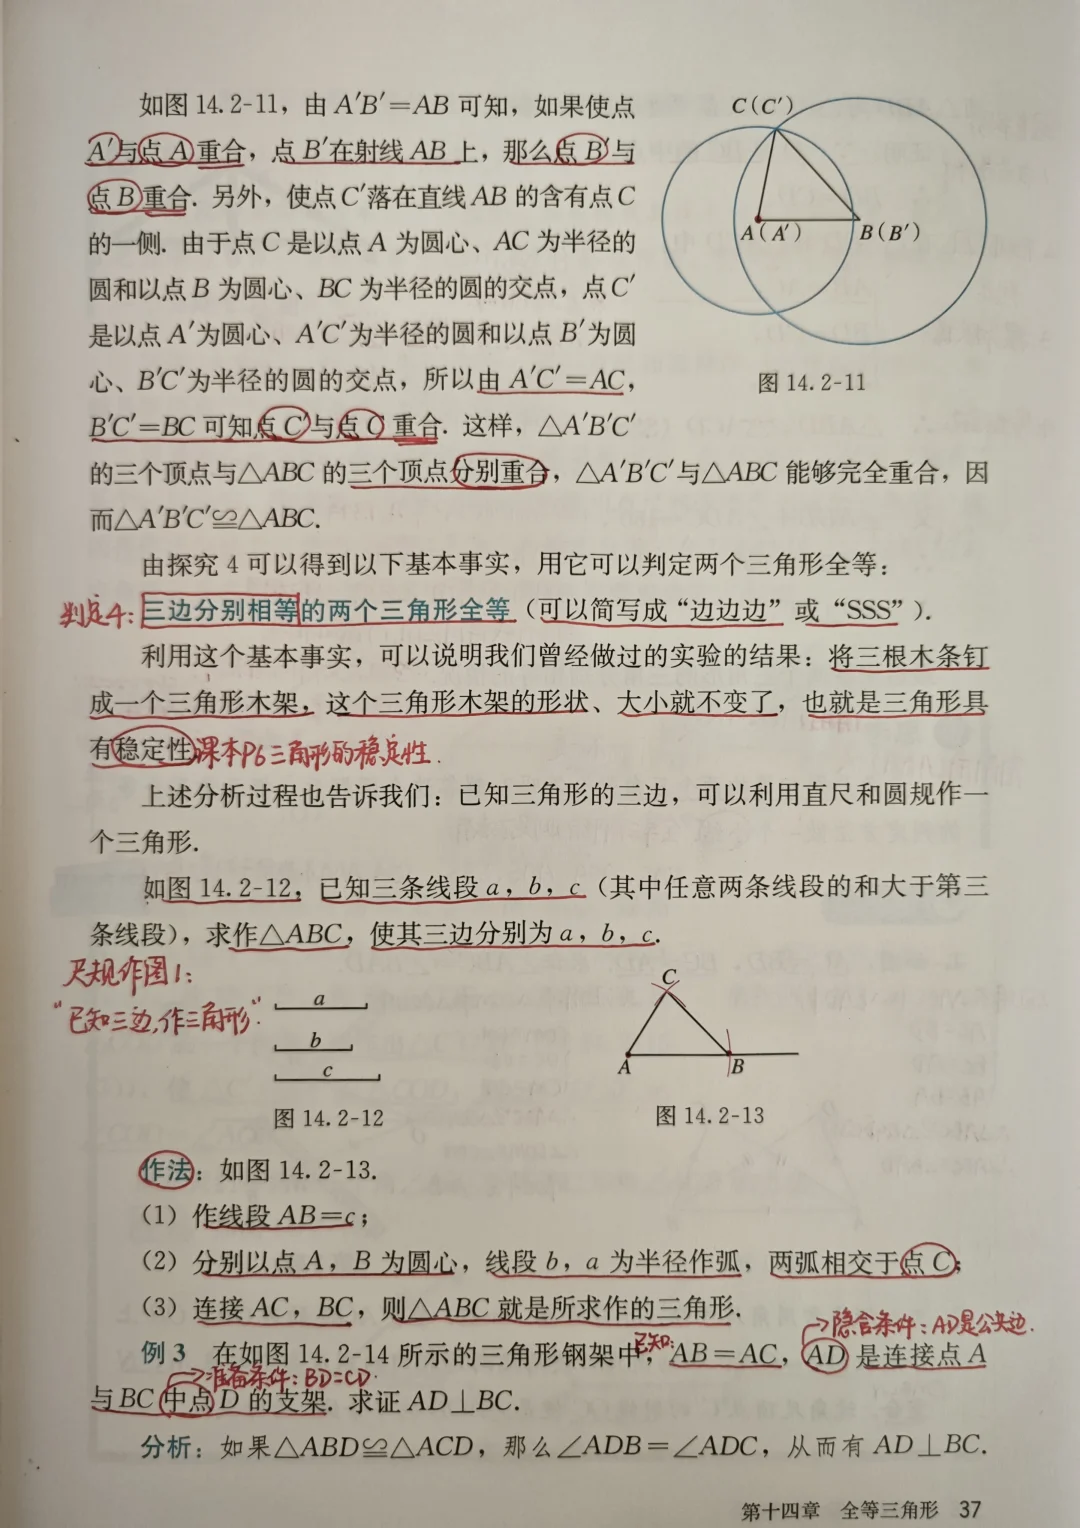 如图 14.2-11，由 A′B′=AB 可知，如果使点
A′与点 A 重合，点 B′在射线 AB 上，那么点 B′与
点 B 重合. 另外，使点 C′落在直线 AB 的含有点 C
的一侧. 由于点 C 是以点 A 为圆心、AC 为半径的
圆和以点 B 为圆心、BC 为半径的圆的交点，点 C′
是以点 A′为圆心、A′C′为半径的圆和以点 B′为圆
心、B′C′为半径的圆的交点，所以由 A′C′=AC，
B′C′=BC 可知点 C′与点 C 重合. 这样，△A′B′C′
C(C′)
A(A′)
B(B′)
图 14.2-11
的三个顶点与△ABC 的三个顶点分别重合，△A′B′C′与△ABC 能够完全重合，因
而△A′B′C′≌△ABC.
由探究 4 可以得到以下基本事实，用它可以判定两个三角形全等：
判定4: 三边分别相等的两个三角形全等（可以简写成“边边边”或“SSS”）.
利用这个基本事实，可以说明我们曾经做过的实验的结果：将三根木条钉
成一个三角形木架，这个三角形木架的形状、大小就不变了，也就是三角形具
有稳定性 课本P6 三角形的稳定性.
上述分析过程也告诉我们：已知三角形的三边，可以利用直尺和圆规作一
个三角形.
如图 14.2-12，已知三条线段 a，b，c（其中任意两条线段的和大于第三
条线段），求作△ABC，使其三边分别为 a，b，c.
尺规作图1:
“已知三边,作三角形”.
a
b
c
图 14.2-12
C
A
B
图 14.2-13
作法：如图 14.2-13.
（1）作线段 AB=c；
（2）分别以点 A，B 为圆心，线段 b，a 为半径作弧，两弧相交于点 C；
（3）连接 AC，BC，则△ABC 就是所求作的三角形.
隐含条件:AD是公共边.
已知:
例 3 在如图 14.2-14 所示的三角形钢架中，AB=AC，AD 是连接点 A
准备条件:BD=CD.
与 BC 中点 D 的支架. 求证 AD⊥BC.
分析：如果△ABD≌△ACD，那么∠ADB=∠ADC，从而有 AD⊥BC.
第十四章 全等三角形 37